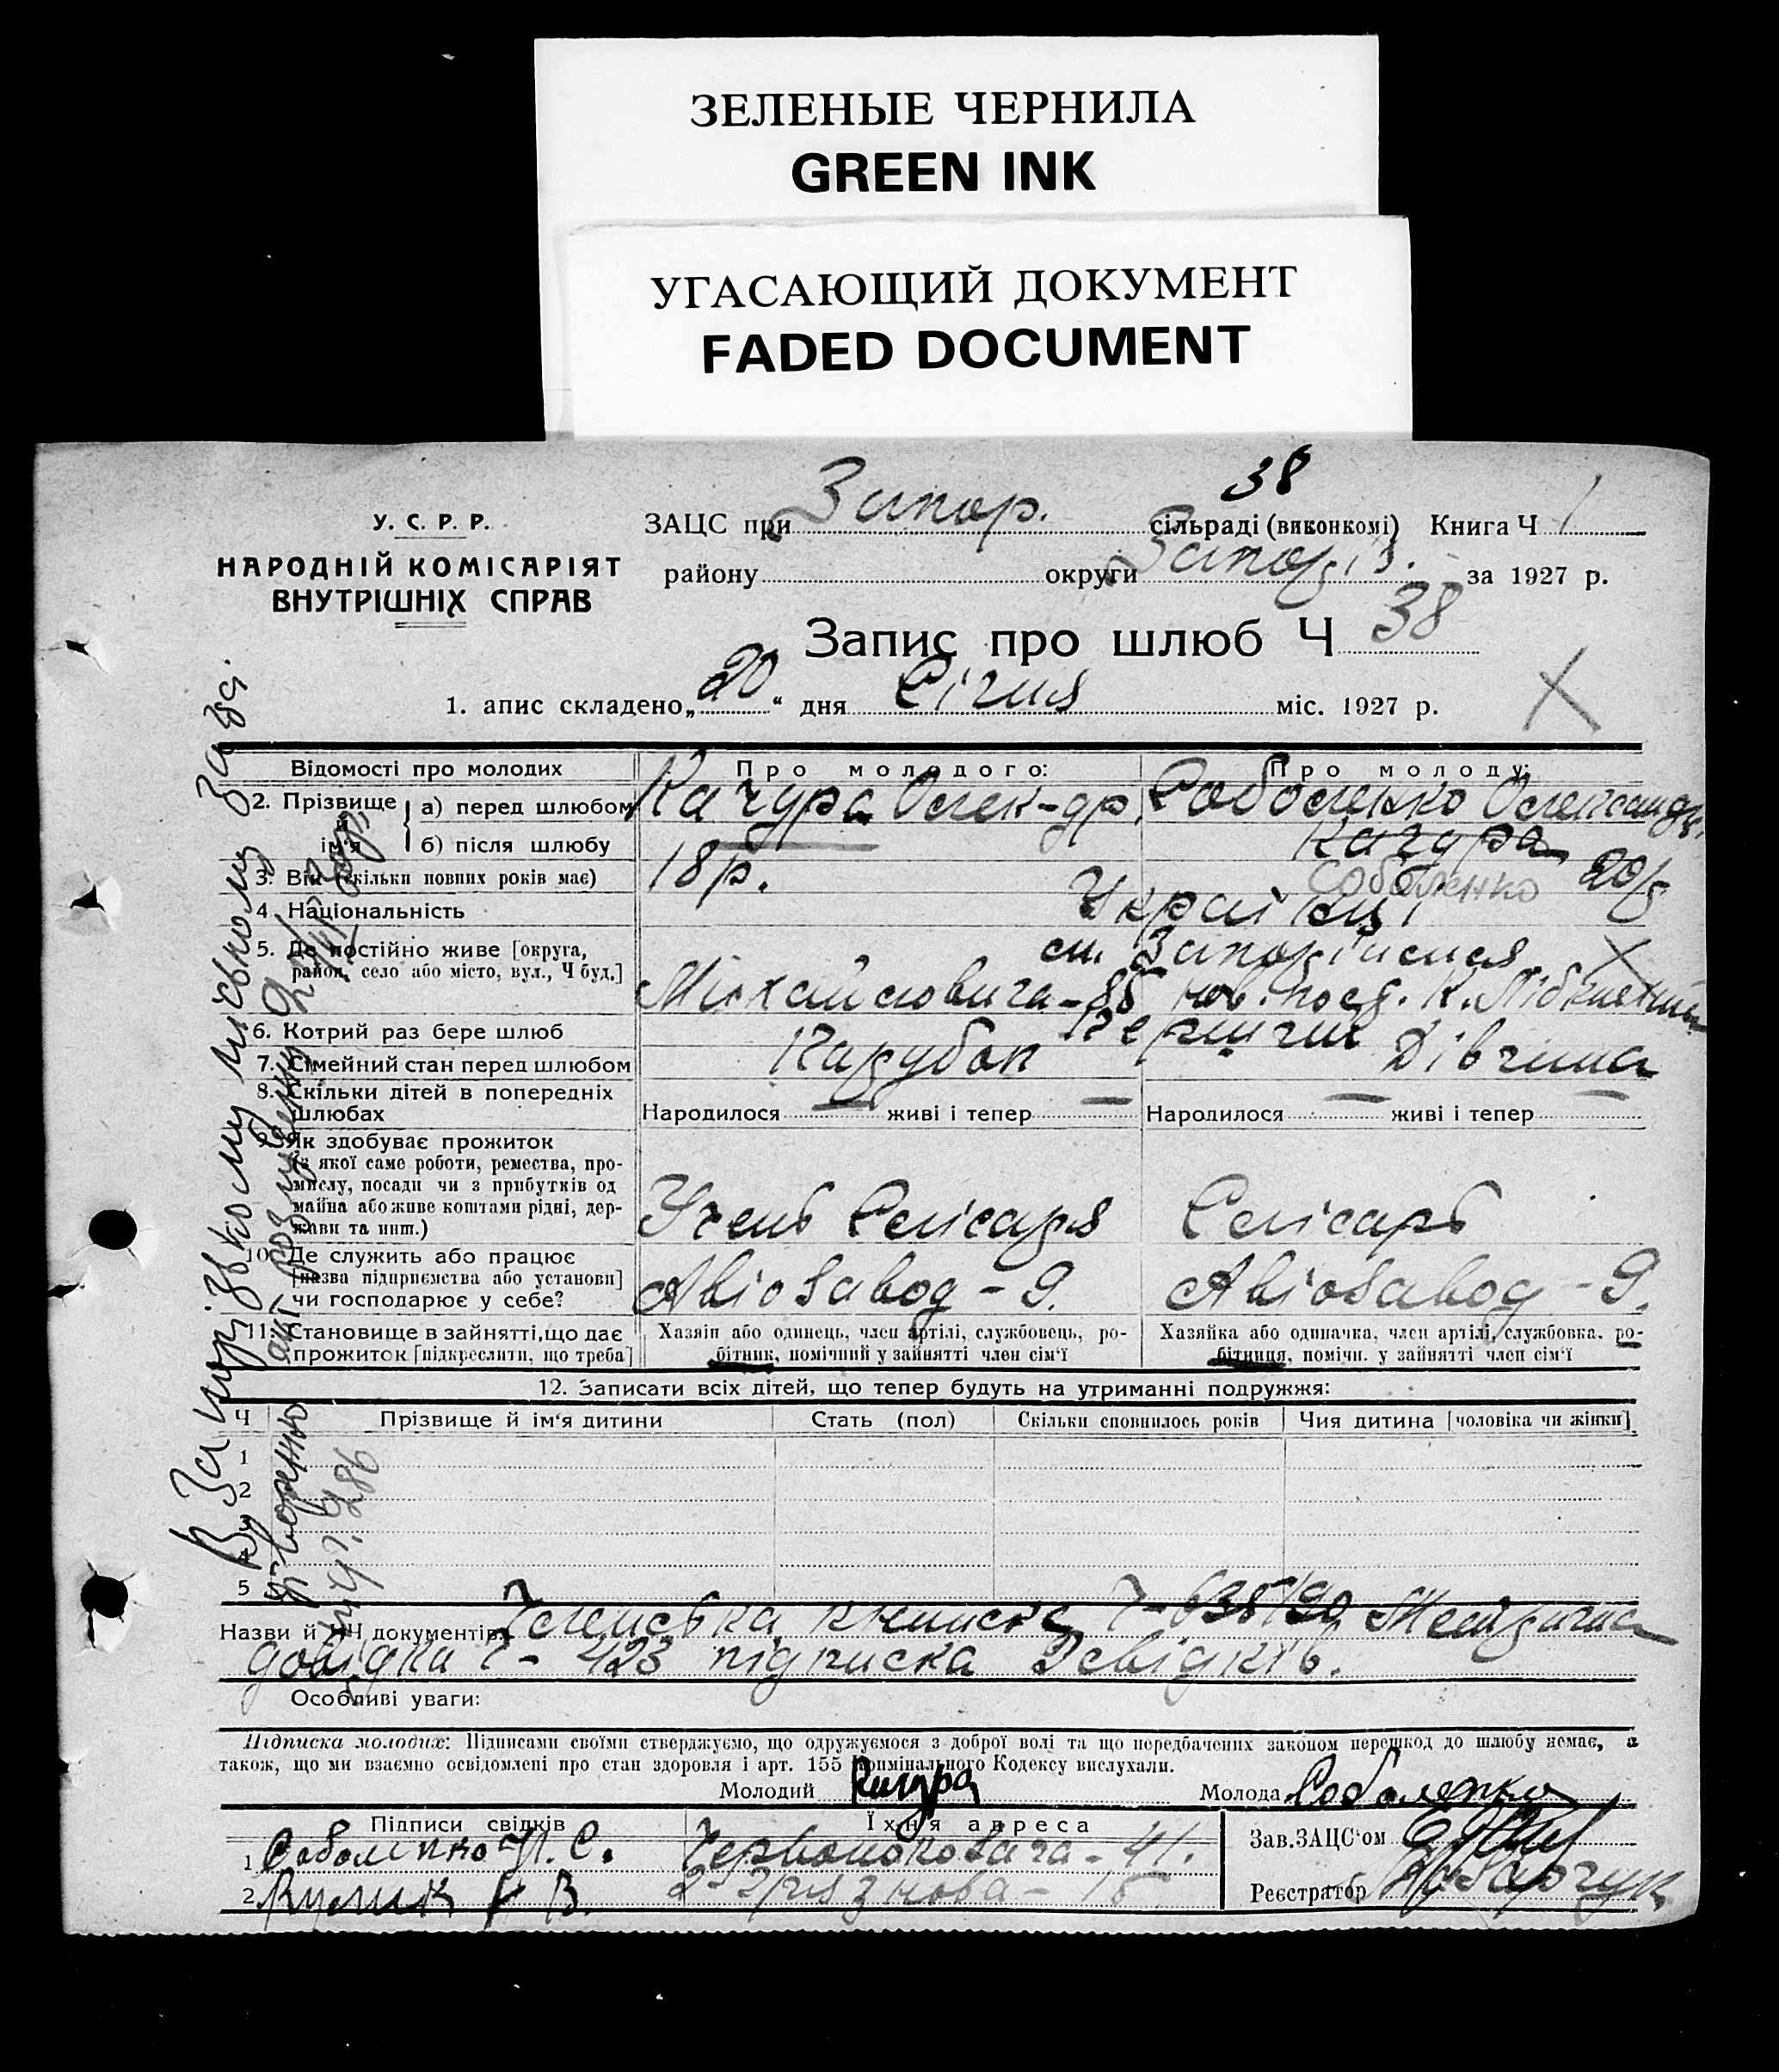 ЗЕЛЕНЫЕ ЧЕРНИЛА
GREEN INK
УГАСАЮЩИЙ ДОКУМЕНТ
FADED DOCUMENT
38
У. С. Р. Р.
НАРОДНІЙ КОМІСАРІЯТ
ВНУТРІШНІХ СПРАВ
ЗАЦС при Запор. сільраді (виконкомі) Книга Ч 1
району округи Запоріз. за 1927 р.
Запис про шлюб Ч 38
1. апис складено „20“ дня Січня міс. 1927 р.
Відомості про молодих Про молодого: Про молоду:
2. Прізвище й ім'я а) перед шлюбом Качура Олек-др. Соболенко Олександр.
б) після шлюбу Качура
Соболенко
3. Вік (скільки повних років має) 18 р. 20 р
4. Національність Українці
5. Де постійно живе [округа, м. Запоріжжя
район, село або місто, вул., Ч буд.] Михайловича-85 нов. посд. К. Лібкнехта
6. Котрий раз бере шлюб Перший
7. Сімейний стан перед шлюбом Парубок Дівчина
8. Скільки дітей в попередніх
шлюбах Народилося — живі і тепер — Народилося — живі і тепер —
9. Як здобуває прожиток
(з якої саме роботи, ремества, про-
мислу, посади чи з прибутків од
майна або живе коштами рідні, дер-
жави та инш.) Учень Слюсаря Слюсарь
10. Де служить або працює
[назва підприємства або установи] Авіозавод - 9. Авіозавод - 9.
чи господарює у себе?
11. Становище в зайнятті, що дає Хазяїн або одинець, член артілі, службовець, ро- Хазяйка або одиначка, член артілі, службовка, ро-
прожиток [підкреслити, що треба] бітник, помічний у зайнятті член сім'ї бітниця, помічн. у зайнятті член сім'ї
12. Записати всіх дітей, що тепер будуть на утриманні подружжя:
Ч Прізвище й ім'я дитини Стать (пол) Скільки сповнилось років Чия дитина [чоловіка чи жінки]
1
2
3
4
5
Назви й ЧЧ документів: Членська книжка Ч-638190 Метрична
довідка Ч- 423 підписка 2 свідків.
Особливі уваги:
Підписка молодих: Підписами своїми стверджуємо, що одружуємося з доброї волі та що передбачених законом перешкод до шлюбу немає, а
також, що ми взаємно освідомлені про стан здоровля і арт. 155 Кримінального Кодексу вислухали.
Молодий Качура Молода Соболенко
Підписи свідків Їхня адреса Зав. ЗАЦС'ом
1 Соболенко П. С. Червонокозача - 41.
2 В. 2 Грязнова - 15 Реєстратор
В Запорізькому міському Загсі
286